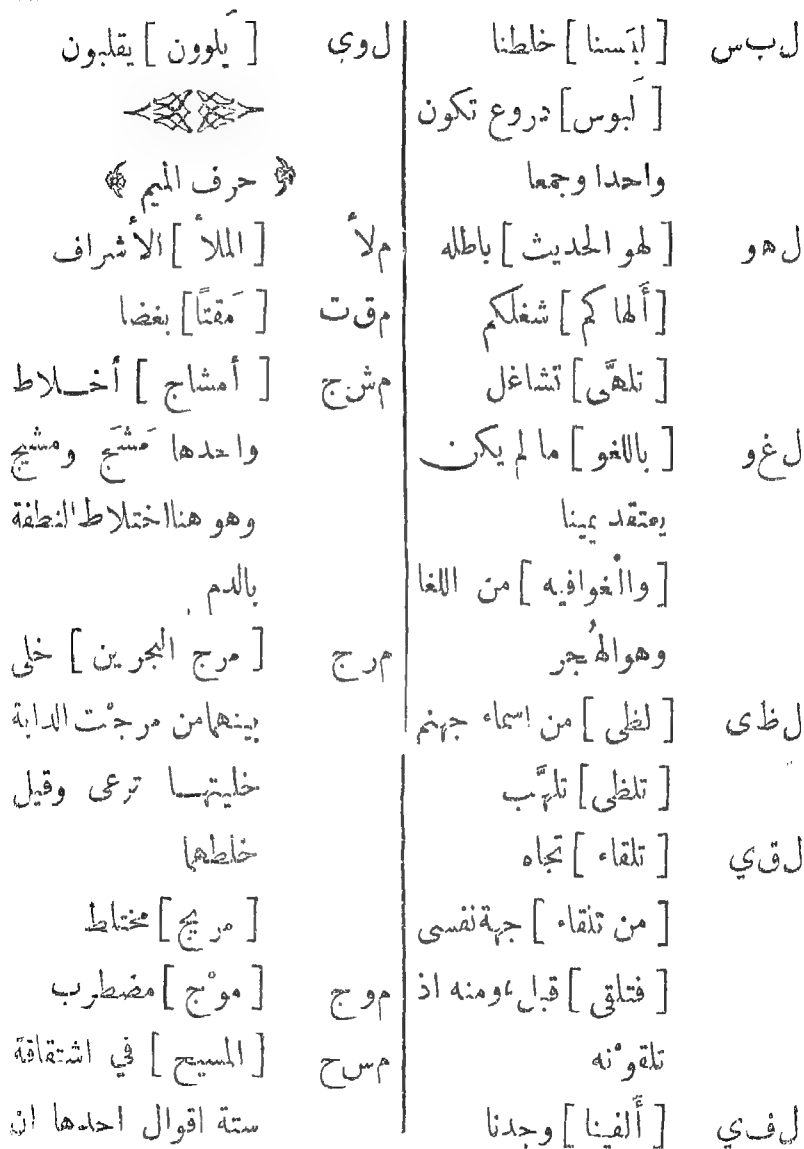 ل ب س [ لبَسنا ] خلطنا
[ لَبوس ] دروع تكون
واحدا وجمعا
ل ه و [ لهو الحديث ] باطله
[ أَلها كم ] شغلكم
[ تلهَّى ] تشاغل
ل غ و [ باللغو ] ما لم يكن
يعتقد يمينا
[ والْغوافيه ] من اللغا
وهوالهُجر
ل ظ ى [ لظى ] من اسماء جهنم
[ تلظى ] تلهَّب
ل ق ي [ تلقاء ] تجاه
[ من تلقاء ] جهةنفسى
[ فتلقى ] قبل ،ومنه اذ
تلقوْنه
ل ف ي [ أَلفينا ] وجدنا
ل و ي [ يَلوون ] يقلبون
﴿ حرف الميم ﴾
م ل أ [ الملأ ] الأشراف
م ق ت [ مَقتًا ] بغضا
م ش ج [ أمشاج ] أخـلاط
واحدها مَشَج ومشيج
وهو هنااختلاط النطفة
بالدم
م ر ج [ مرج البحرين ] خلى
بينهمامن مرجْت الدابة
خليتهـا ترعى وقيل
خلطهما
[ مريج ] مختلط
م و ج [ موْج ] مضطرب
م س ح [ المسيح ] في اشتقاقة
ستة اقوال احدها ان